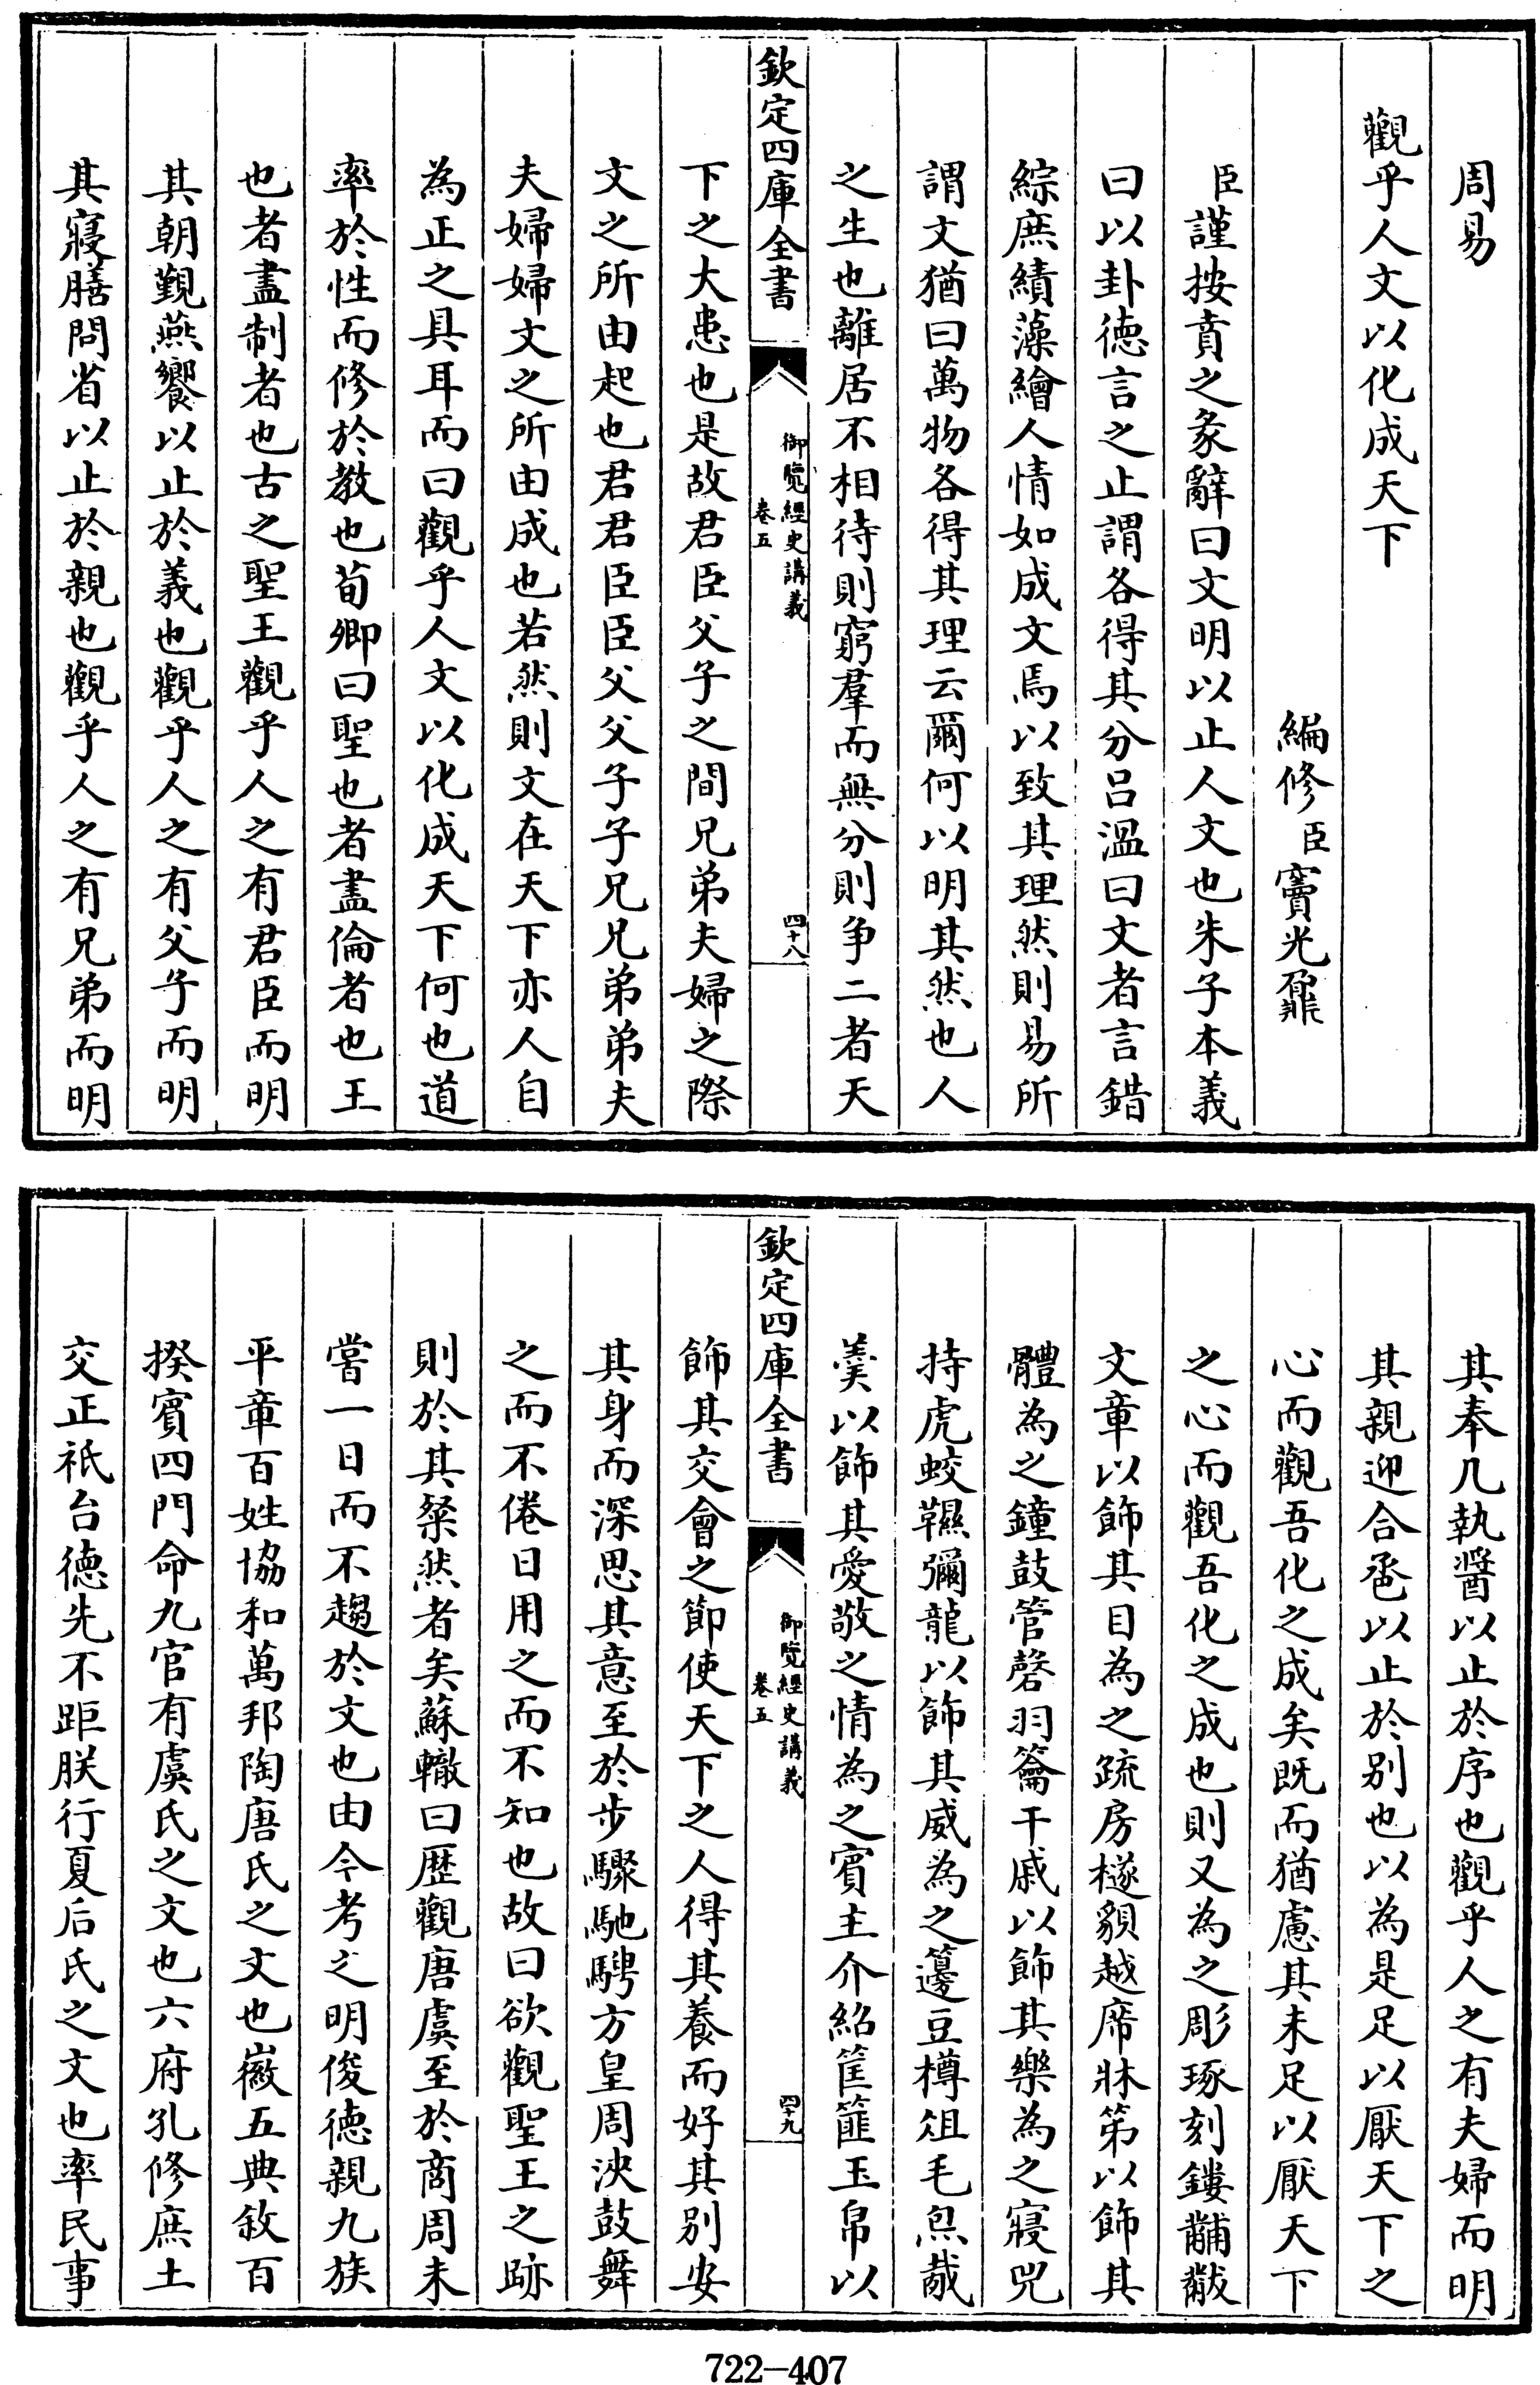 周易
觀乎人文以化成天下
編修臣竇光鼐
臣謹按賁之彖辭曰文明以止人文也朱子本義
曰以卦德言之止謂各得其分呂溫曰文者言錯
綜庶績藻繪人情如成文焉以致其理然則易所
謂文猶曰萬物各得其理云爾何以明其然也人
之生也離居不相待則窮羣而無分則爭二者天
欽定四庫全書
御覽經史講義
卷五
四十八
下之大患也是故君臣父子之間兄弟夫婦之際
文之所由起也君君臣臣父父子子兄兄弟弟夫
夫婦婦文之所由成也若然則文在天下亦人自
為正之具耳而曰觀乎人文以化成天下何也道
率於性而修於教也荀卿曰聖也者盡倫者也王
也者盡制者也古之聖王觀乎人之有君臣而明
其朝覲燕饗以止於義也觀乎人之有父子而明
其寢膳問省以止於親也觀乎人之有兄弟而明
其奉几執醬以止於序也觀乎人之有夫婦而明
其親迎合巹以止於别也以為是足以厭天下之
心而觀吾化之成矣既而猶慮其未足以厭天下
之心而觀吾化之成也則又為之彫琢刻鏤黼黻
文章以飾其目為之疏房檖䫉越席牀笫以飾其
體為之鐘鼓管磬羽籥干戚以飾其樂為之寢兕
持虎蛟韅彌龍以飾其威為之籩豆樽俎毛炰胾
羹以飾其愛敬之情為之賓主介紹筐篚玉帛以
欽定四庫全書
御覽經史講義
卷五
四十九
飾其交會之節使天下之人得其養而好其别安
其身而深思其意至於步驟馳騁方皇周浹鼓舞
之而不倦日用之而不知也故曰欲觀聖王之跡
則於其粲然者矣蘇轍曰歷觀唐虞至於商周未
嘗一日而不趨於文也由今考之明俊德親九族
平章百姓協和萬邦陶唐氏之文也徽五典敘百
揆賓四門命九官有虞氏之文也六府孔修庶土
交正祇台德先不距朕行夏后氏之文也率民事
722-407